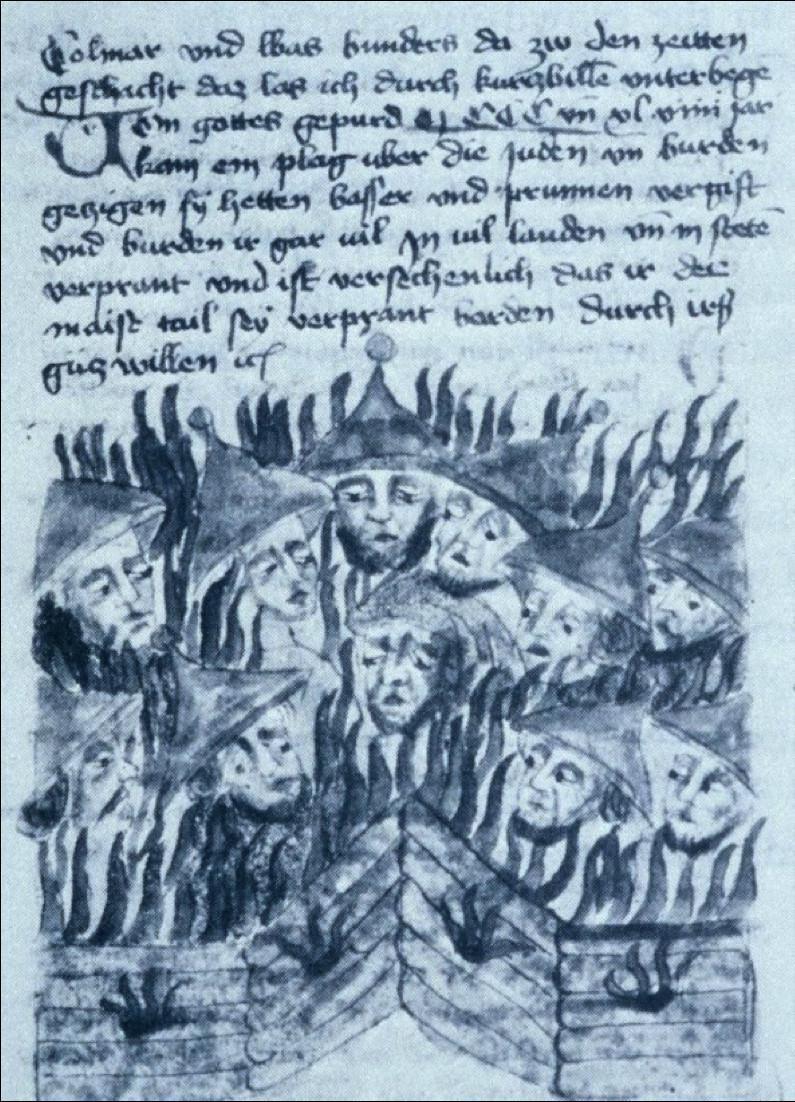 Colmar vnd was bunders da zw den zeitten
geschicht daz las ich durch kurczbille vnterbege
Dem gottes gepurd M CCC vn xl viiii jar
kam ein plag uber die Juden vn burden
geczigen sy hetten basser vnd prunnen vergift
vnd burden ir gar uil jn uil landen vn in stete
verprant vnd ist versechenlich das ir der
maist tail sey verprant borden durch irs
gucz willen